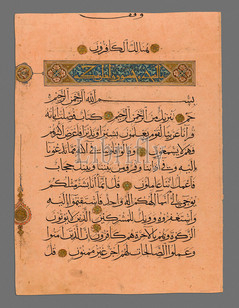 وقف
هنالك الكافرون
بسم الله الرحمن الرحيم
حم تنزيل من الرحمن الرحيم كتاب فصلت اياته
قرانا عربيا لقوم يعلمون بشيرا ونذيرا فاعرض اكثرهم
فهم لا يسمعون وقالوا قلوبنا في اكنة مما تدعونا
اليه وفي اذاننا وقر ومن بيننا وبينك حجاب
فاعمل اننا عاملون قل انما انا بشر مثلكم
يوحى الي انما الهكم اله واحد فاستقيموا اليه
واستغفروه وويل للمشركين الذين لا يؤتون
الزكوة وهم بالاخرة هم كافرون ان الذين امنوا
وعملوا الصالحات لهم اجر غير ممنون قل